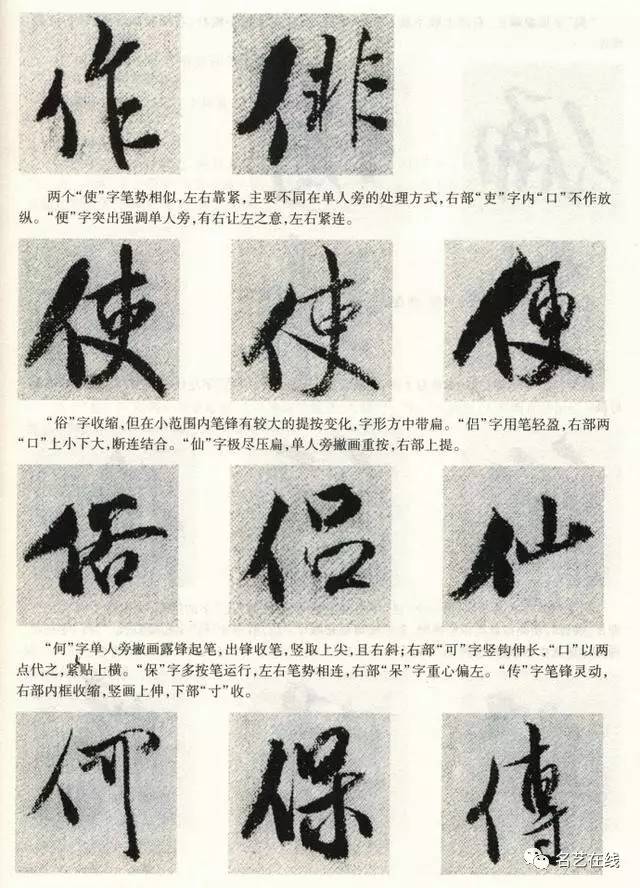 作 俳
两个“使”字笔势相似,左右靠紧,主要不同在单人旁的处理方式,右部“吏”字内“口”不作放
纵。“便”字突出强调单人旁,有右让左之意,左右紧连。
使 使 便
“俗”字收缩,但在小范围内笔锋有较大的提按变化,字形方中带扁。“侣”字用笔轻盈,右部两
“口”上小下大,断连结合。“仙”字极尽压扁,单人旁撇画重按,右部上提。
俗 侣 仙
“何”字单人旁撇画露锋起笔,出锋收笔,竖取上尖,且右斜;右部“可”字竖钩伸长,“口”以两
点代之,紧贴上横。“保”字多按笔运行,左右笔势相连,右部“呆”字重心偏左。“传”字笔锋灵动,
右部内框收缩,竖画上伸,下部“寸”收。
何 保 傳
名艺在线